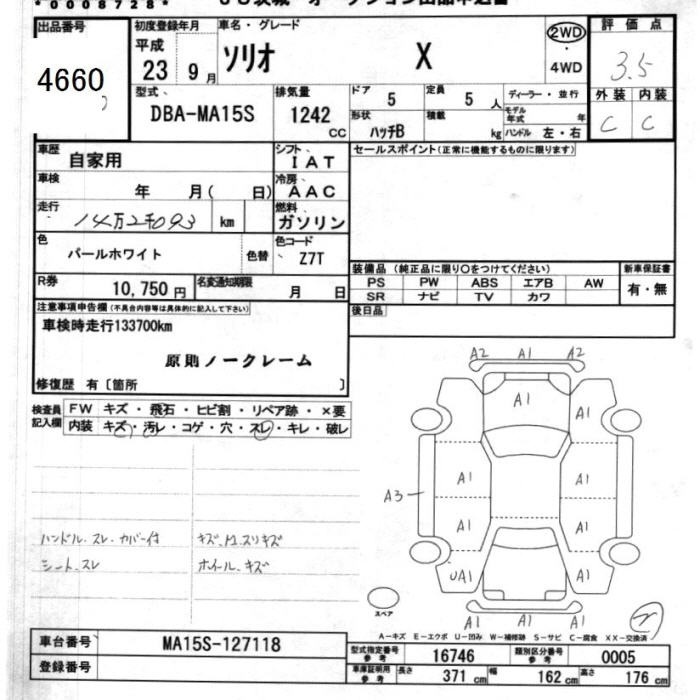 *0008728*
出品番号 初度登録年月 車名・グレード 評価点
4660 平成 23 9月 ソリオ X 2WD・4WD 3.5
型式 排気量 ドア 5 定員 5人 ディーラー・並行 外装 内装
DBA-MA15S 1242 CC 形状 ハッチB 積載 kg モデル年式 年 ハンドル 左・右 C C
車歴 自家用 シフト IAT セールスポイント(正常に機能するものに限ります)
車検 年 月( 日) 冷房 AAC
走行 14万2千093 km 燃料 ガソリン
色 パールホワイト 色替 色コード Z7T
装備品(純正品に限り○をつけてください) 新車保証書
PS PW ABS エアB AW 有・無
SR ナビ TV カワ
R券 10,750円 名変通知期限 月 日
後日品
注意事項申告欄(不具合内容等は具体的に記入して下さい)
車検時走行133700km
原則ノークレーム
修復歴 有〔箇所 〕
検査員記入欄 FW キズ・飛石・ヒビ割・リペア跡・×要
内装 キズ・汚レ・コゲ・穴・スレ・キレ・破レ
ハンドル.スレ.カバー付 キズ、凹スリキズ
シート.スレ ホイール.キズ
A2 A1 A2
A1
A1 A1
A1 A1
A3
A1 A1
UA1 A1
A1 A1 A1
スペア
A-キズ E-エクボ U-凹み W-補修跡 S-サビ C-腐食 XX-交換済
車台番号 MA15S-127118
登録番号
型式指定番号 参考 16746 類別区分番号 参考 0005
車庫証明用 参考 長さ 371 cm 幅 162 cm 高さ 176 cm